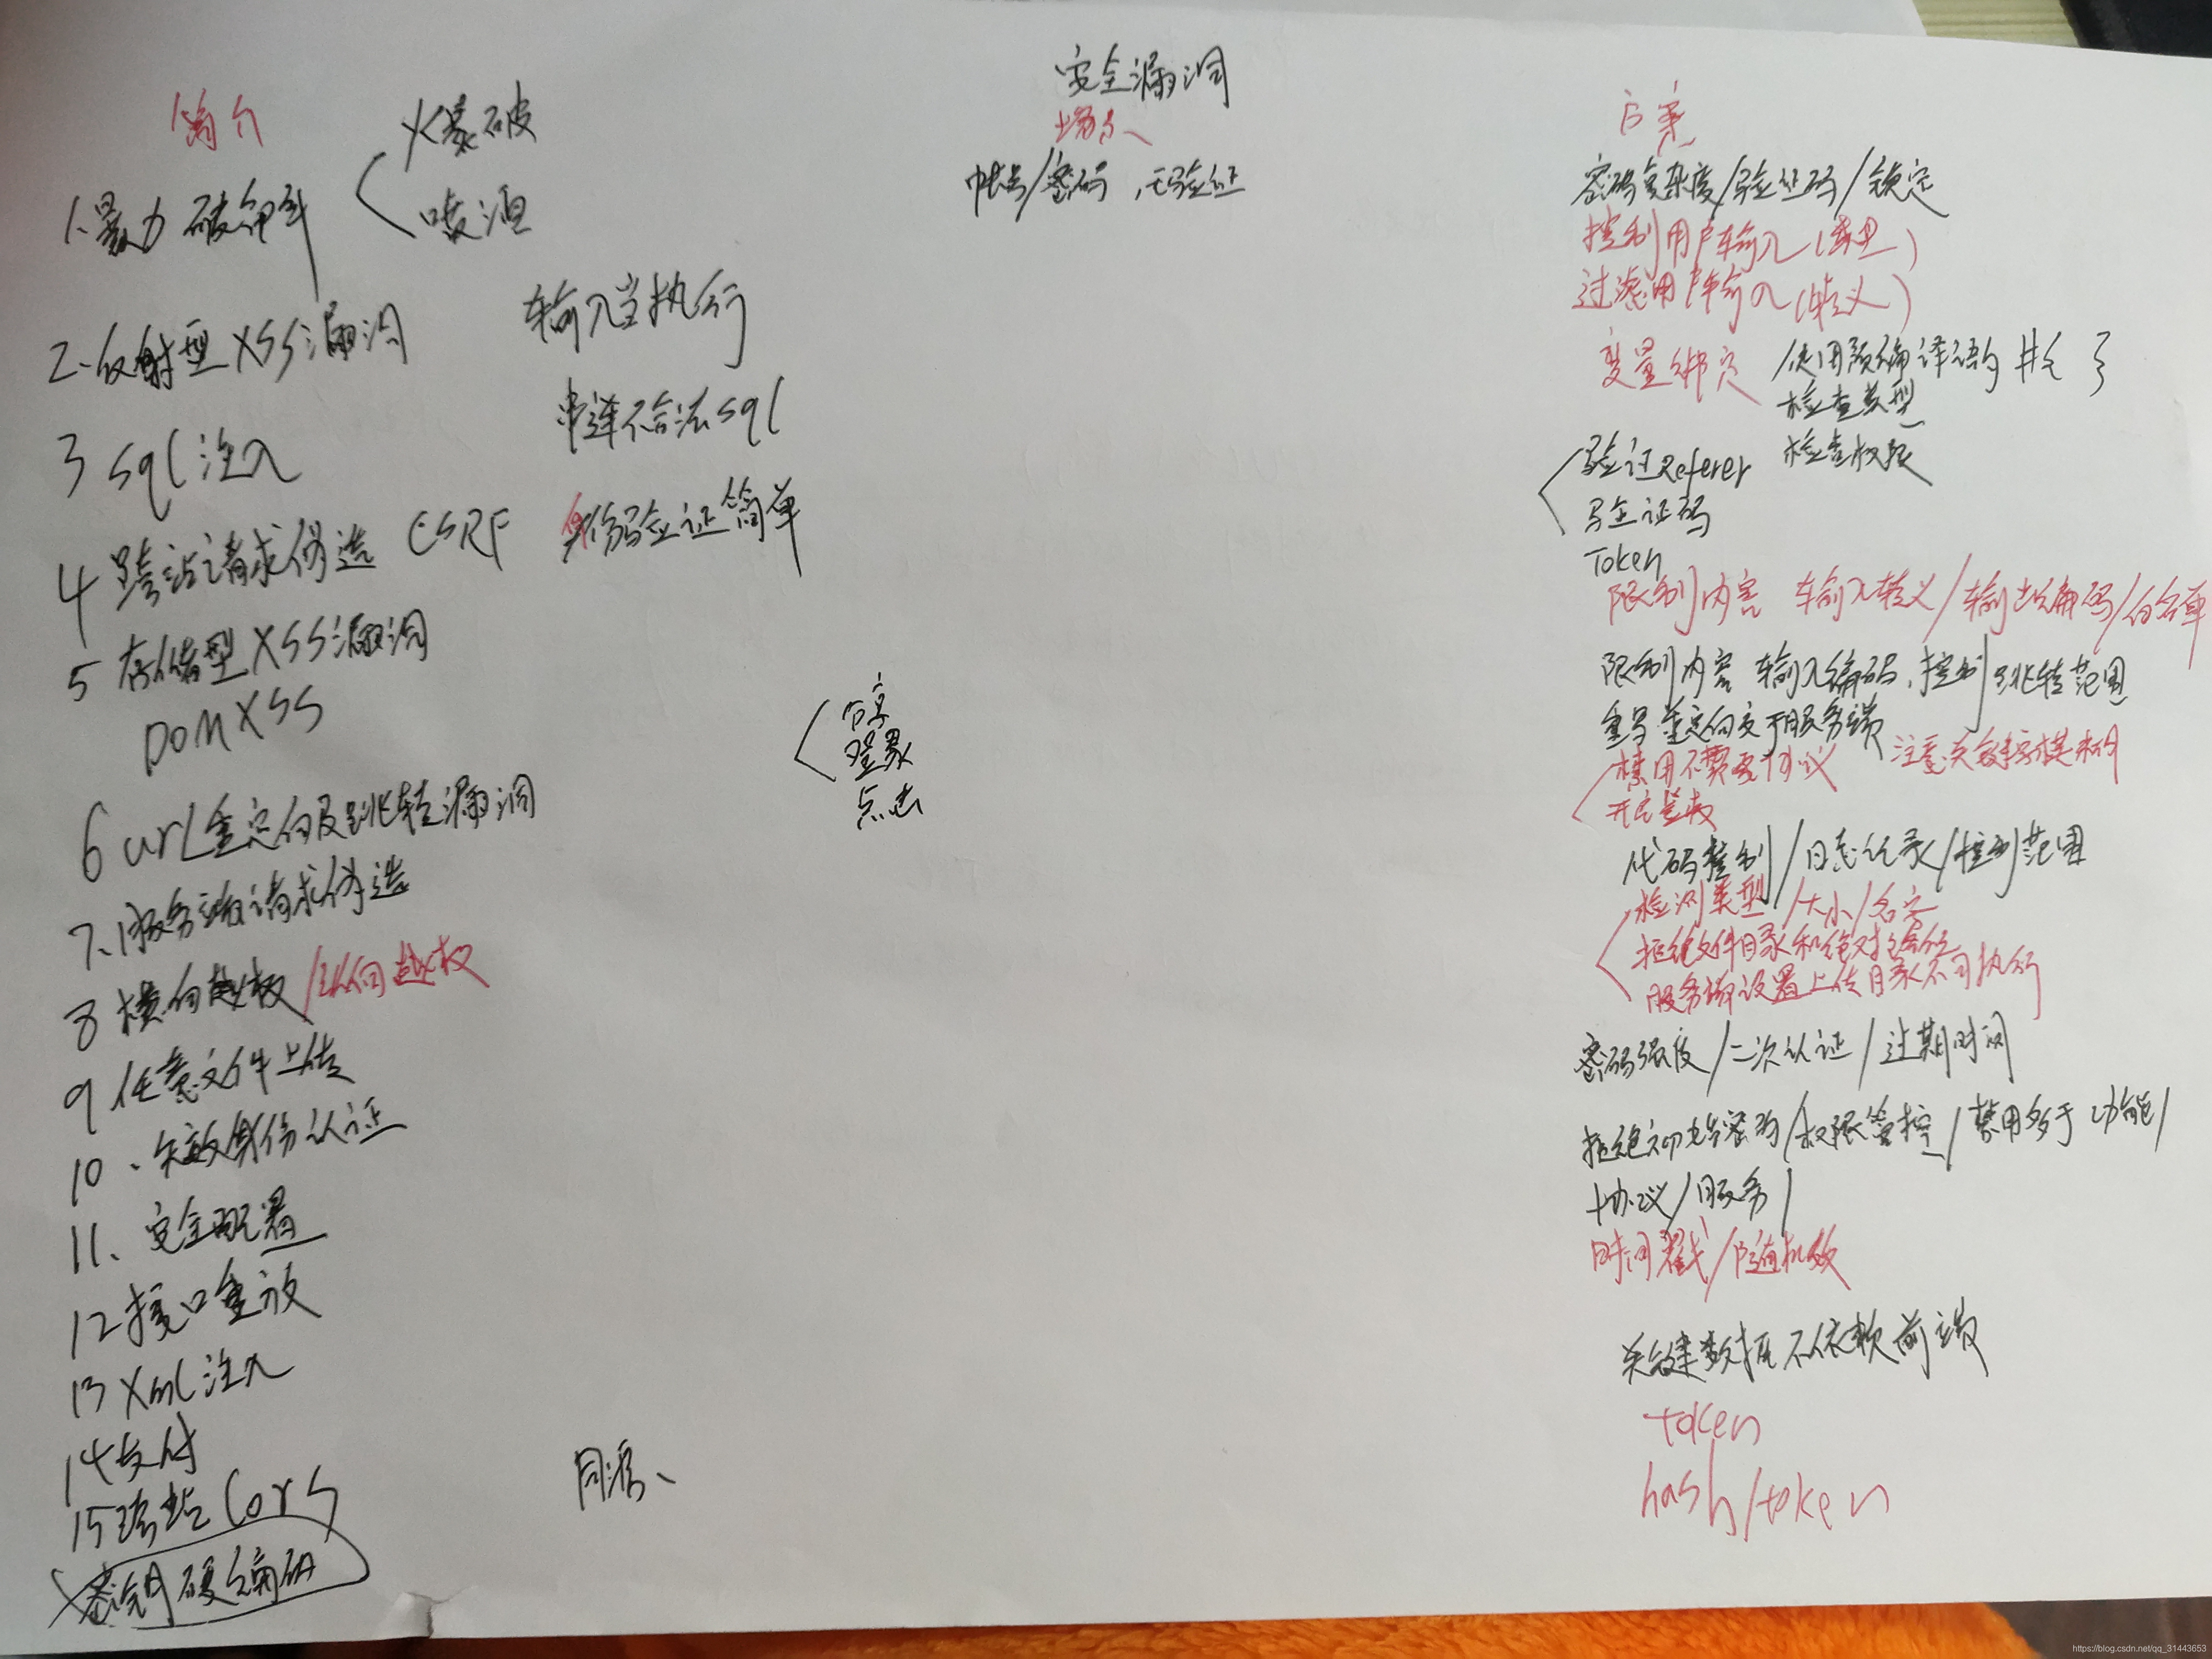 安全漏洞
简介
场景
方案
1.暴力破解
爆破
喷洒
帐号/密码，无验证
密码复杂度/验证码/锁定
2.反射型XSS漏洞
输入当执行
控制用户输入(类型)
过滤用户输入(转义)
3 sql注入
串连不合法sql
变量绑定 使用预编译语句 #{ }
检查类型
检查权限
4 跨站请求伪造 CSRF
身份验证简单
验证Referer
验证码
Token
5 存储型XSS漏洞
DOM XSS
限制内容 输入转义/输出编码/白名单
6 url重定向及跳转漏洞
分享
登录
点击
限制内容 输入编码，控制跳转范围
重写重定向交于服务端
7、服务端请求伪造
禁用不需要协议
注意关键字模糊
开启鉴权
8 横向越权/纵向越权
代码控制/日志记录/控制范围
9 任意文件上传
检测类型/大小/名字
拒绝文件目录和绝对路径
服务端设置上传目录不可执行
10、失效身份认证
密码强度/二次认证/过期时间
11、安全配置
拒绝初始密码/权限管控/禁用多于功能/
协议/服务/
12 接口重放
时间戳/随机数
13 Xml注入
14 支付
关键数据不依赖前端
15 跨站 Cors
同源、
token
hash/token
密钥硬编码
https://blog.csdn.net/qq_31443653